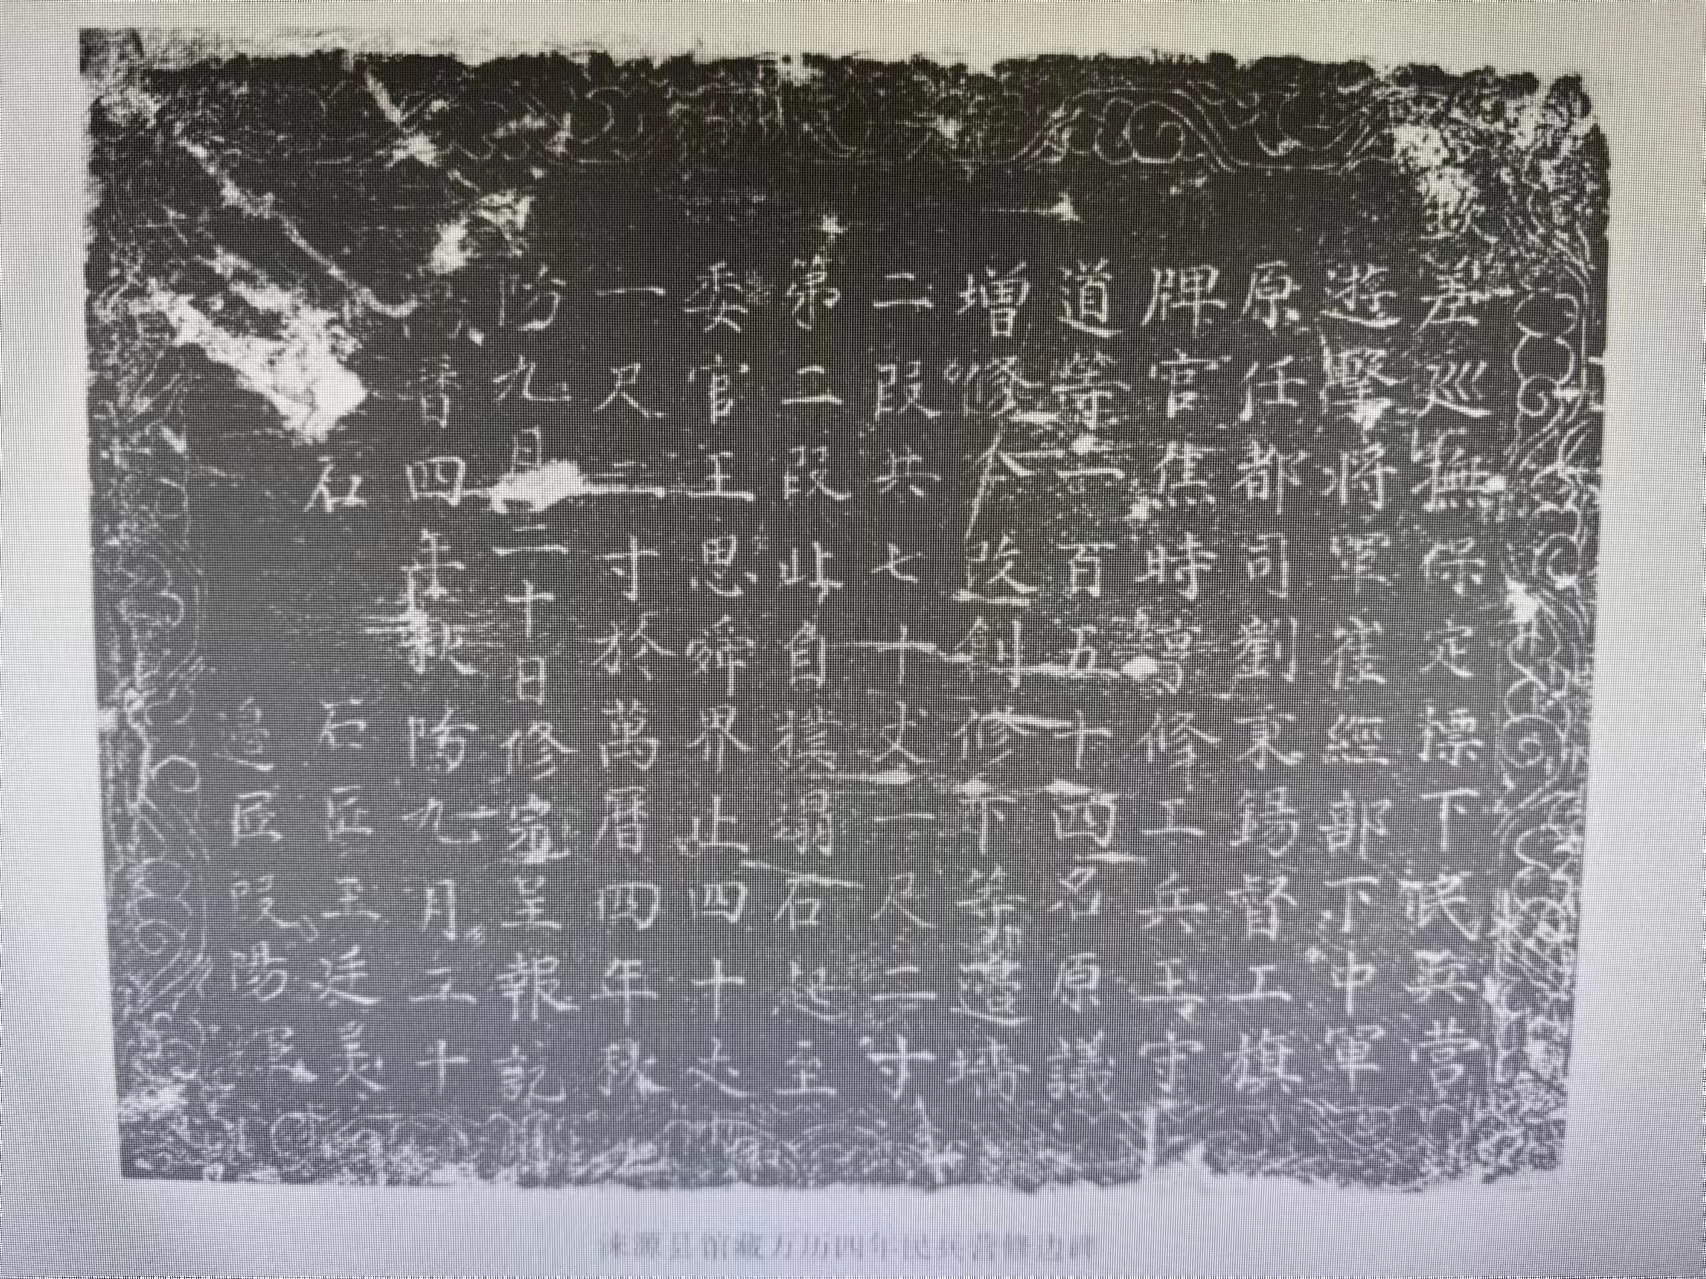 欽
差巡撫保定標下民兵營
遊擊將軍崔經部下中軍
原任都司劉秉錫督工旗
牌官焦時寫修工兵王宇
道等一百五十四名原議
增修今改創修下等邊墻
二段共七十丈一尺二寸
第二段此自攬塌石起至
委官王思舜界止四十丈
一尺二寸於萬曆四年秋
防九月二十日修完呈報訖
四年秋防九月二十
石 石匠王廷美
邊匠段陽
涞源县馆藏万历四年民兵营修边碑